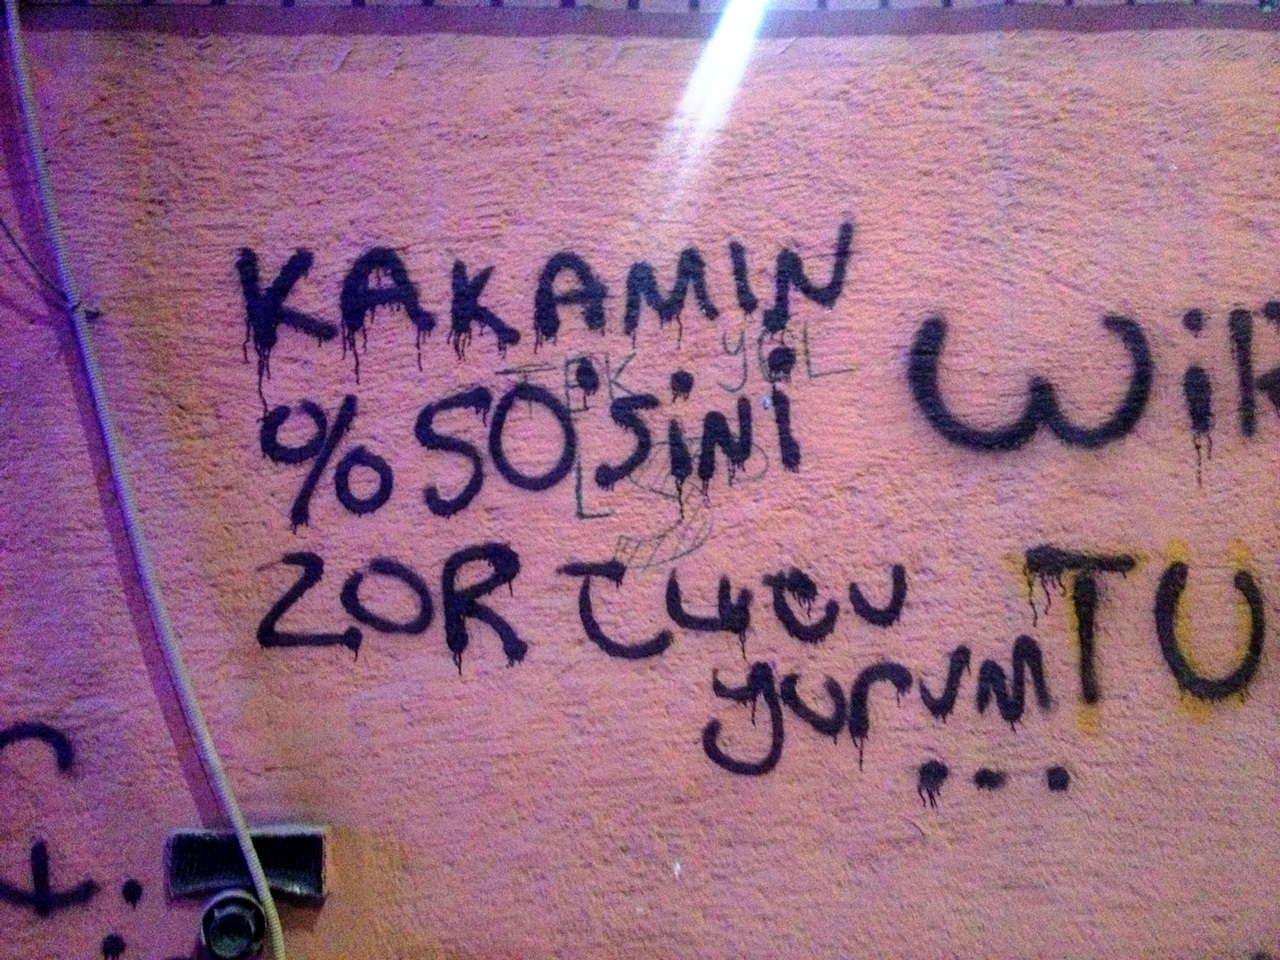 KAKAMIN
%50'sini
ZOR tutu
yorum
...
TEK YOL
Wir
TU